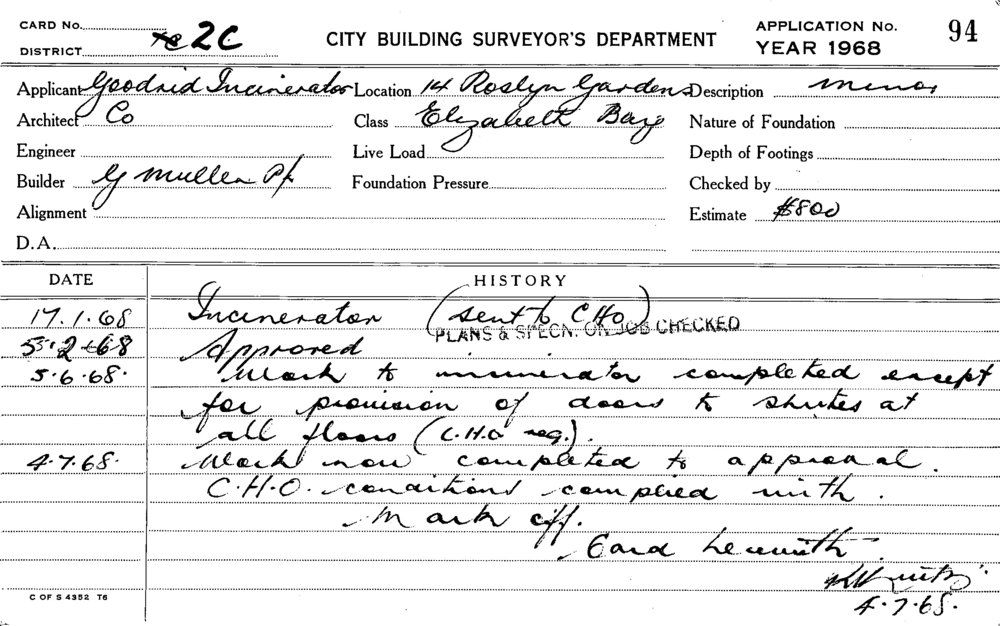 CARD No.
DISTRICT 2C
CITY BUILDING SURVEYOR'S DEPARTMENT
APPLICATION No. 94
YEAR 1968
Applicant Goodrid Incinerator
Location 14 Roslyn Gardens
Description minor
Architect Co
Class Elizabeth Bay
Nature of Foundation
Engineer
Live Load
Depth of Footings
Builder G Mullen P/L
Foundation Pressure
Checked by
Alignment
Estimate $800
D.A.
DATE HISTORY
17.1.68 Incinerator (sent to C.H.O)
PLANS & SPECN. ON JOB CHECKED
5.2.68 Approved
5.6.68. Work to incinerator completed except
for provision of doors to shutes at
all floors (C.H.O req.).
4.7.68. Work now completed to approval.
C.H.O. conditions complied with.
Mark off.
Card herewith
4.7.68.
C OF S 4352 T6